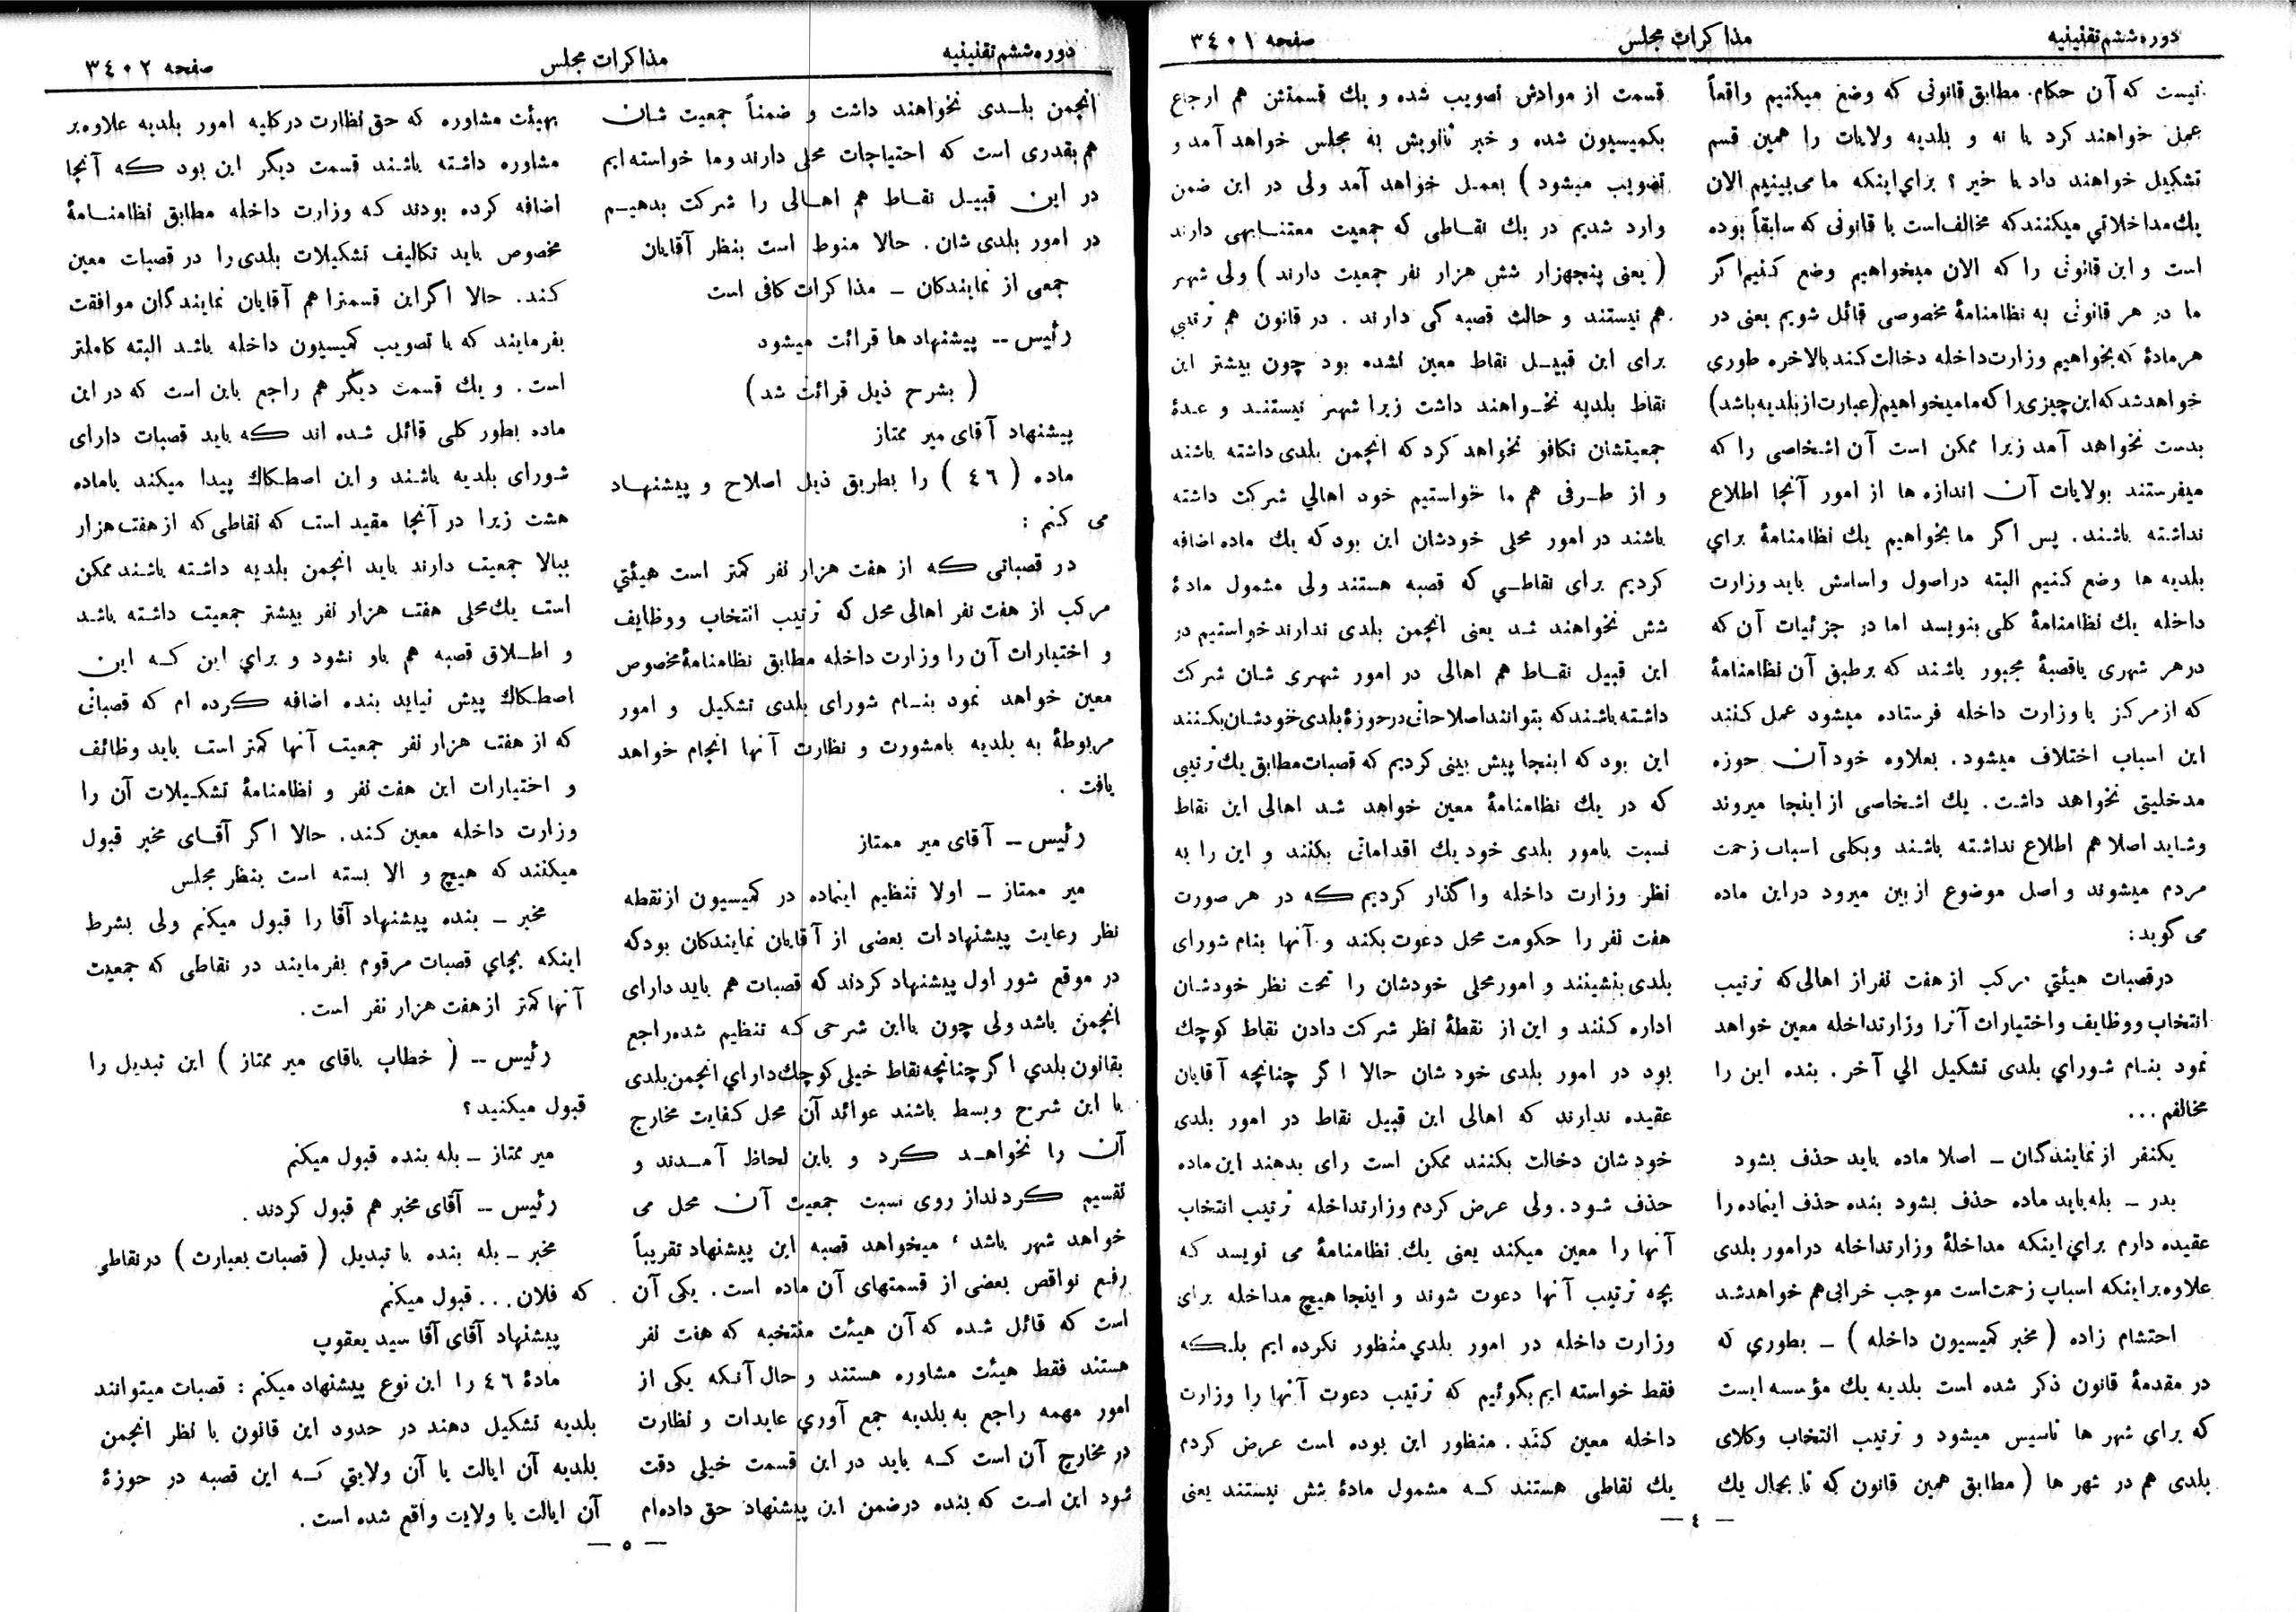 دوره ششم تقنینیه
مذاکرات مجلس
صفحه ۳٤۰۱
نیست که آن حکام. مطابق قانونی که وضع میکنیم واقعاً
عمل خواهند کرد یا نه و بلدیه ولایات را همین قسم
تشکیل خواهند داد یا خیر ؟ برای اینکه ما می بینیم الان
یك مداخلاتی میکنند که مخالف است با قانونی که سابقاً بوده
است و این قانونی را که الان میخواهیم وضع کنیم اگر
ما در هر قانونی به نظامنامهٔ مخصوصی قائل شویم یعنی در
هر مادهٔ که بخواهیم وزارت داخله دخالت کند بالاخره طوری
خواهد شد که این چیزی را که ما میخواهیم (عبارت از بلدیه باشد)
بدست نخواهد آمد زیرا ممکن است آن اشخاصی را که
میفرستند بولایات آن اندازه ها از امور آنجا اطلاع
نداشته باشند. پس اگر ما بخواهیم یك نظامنامهٔ برای
بلدیه ها وضع کنیم البته در اصول و اساسش باید وزارت
داخله یك نظامنامهٔ کلی بنویسد اما در جزئیات آن که
در هر شهری یا قصبهٔ مجبور باشند که بر طبق آن نظامنامهٔ
که از مرکز یا وزارت داخله فرستاده میشود عمل کنند
این اسباب اختلاف میشود. بعلاوه خود آن حوزه
مدخلیتی نخواهد داشت. یك اشخاصی از اینجا میروند
و شاید اصلا هم اطلاع نداشته باشند و بکلی اسباب زحمت
مردم میشوند و اصل موضوع از بین میرود در این ماده
می گوید:
در قصبات هیئتی مرکب از هفت نفر از اهالی که ترتیب
انتخاب و وظایف و اختیارات آنرا وزارتداخله معین خواهد
نمود بنام شورای بلدی تشکیل الی آخر. بنده این را
مخالفم ...
یکنفر از نمایندگان ــ اصلا ماده باید حذف بشود
بدر ــ بله باید ماده حذف بشود بنده حذف اینماده را
عقیده دارم برای اینکه مداخلهٔ وزارتداخله در امور بلدی
علاوه بر اینکه اسباب زحمت است موجب خرابی هم خواهد شد
احتشام زاده ( مخبر کمیسیون داخله ) ــ بطوری که
در مقدمهٔ قانون ذکر شده است بلدیه یك مؤسسه ایست
که برای شهر ها تاسیس میشود و ترتیب انتخاب وکلای
بلدی هم در شهر ها ( مطابق همین قانون که تا بحال یك
قسمت از موادش تصویب شده و یك قسمتش هم ارجاع
بکمیسیون شده و خبر ثانویش به مجلس خواهد آمد و
تصویب میشود ) بعمل خواهد آمد ولی در این ضمن
وارد شدیم در یك نقاطی که جمعیت معتنابهی دارند
( یعنی پنجهزار شش هزار نفر جمعیت دارند ) ولی شهر
هم نیستند و حالت قصبه گی دارند . در قانون هم ترتیبی
برای این قبیل نقاط معین نشده بود چون بیشتر این
نقاط بلدیه نخواهند داشت زیرا شهر نیستند و عدهٔ
جمعیتشان تکافو نخواهد کرد که انجمن بلدی داشته باشند
و از طرفی هم ما خواستیم خود اهالی شرکت داشته
باشند در امور محلی خودشان این بود که یك ماده اضافه
کردیم برای نقاطی که قصبه هستند ولی مشمول مادهٔ
شش نخواهند شد یعنی انجمن بلدی ندارند خواستیم در
این قبیل نقاط هم اهالی در امور شهری شان شرکت
داشته باشند که بتوانند اصلاحاتی در حوزهٔ بلدی خودشان بکنند
این بود که اینجا پیش بینی کردیم که قصبات مطابق یك ترتیبی
که در یك نظامنامهٔ معین خواهد شد اهالی این نقاط
نسبت بامور بلدی خود یك اقداماتی بکنند و این را به
نظر وزارت داخله واگذار کردیم که در هر صورت
هفت نفر را حکومت محل دعوت بکند و آنها بنام شورای
بلدی بنشینند و امور محلی خودشان را تحت نظر خودشان
اداره کنند و این از نقطهٔ نظر شرکت دادن نقاط کوچك
بود در امور بلدی خودشان حالا اگر چنانچه آقایان
عقیده ندارند که اهالی این قبیل نقاط در امور بلدی
خودشان دخالت بکنند ممکن است رای بدهند این ماده
حذف شود. ولی عرض کردم وزارتداخله ترتیب انتخاب
آنها را معین میکند یعنی یك نظامنامهٔ می نویسد که
بچه ترتیب آنها دعوت شوند و اینجا هیچ مداخله برای
وزارت داخله در امور بلدی منظور نکرده ایم بلکه
فقط خواسته ایم بگوئیم که ترتیب دعوت آنها را وزارت
داخله معین کند. منظور این بوده است عرض کردم
یك نقاطی هستند که مشمول مادهٔ شش نیستند یعنی
— ٤ —
دوره ششم تقنینیه
مذاکرات مجلس
صفحه ۳٤۰۲
انجمن بلدی نخواهند داشت و ضمناً جمعیت شان
هم بقدری است که احتیاجات محلی دارند و ما خواسته ایم
در این قبیل نقاط هم اهالی را شرکت بدهیم
در امور بلدی شان. حالا منوط است بنظر آقایان
جمعی از نمایندگان ــ مذاکرات کافی است
رئیس ــ پیشنهاد ها قرائت میشود
( بشرح ذیل قرائت شد )
پیشنهاد آقای میر ممتاز
ماده ( ٤٦ ) را بطریق ذیل اصلاح و پیشنهاد
می کنم :
در قصباتی که از هفت هزار نفر کمتر است هیئتی
مرکب از هفت نفر اهالی محل که ترتیب انتخاب و وظایف
و اختیارات آن را وزارت داخله مطابق نظامنامهٔ مخصوص
معین خواهد نمود بنام شورای بلدی تشکیل و امور
مربوطهٔ به بلدیه بامشورت و نظارت آنها انجام خواهد
یافت .
رئیس ــ آقای میر ممتاز
میر ممتاز ــ اولا تنظیم اینماده در کمیسیون از نقطه
نظر رعایت پیشنهادات بعضی از آقایان نمایندگان بود که
در موقع شور اول پیشنهاد کردند که قصبات هم باید دارای
انجمن باشد ولی چون با این شرحی که تنظیم شده راجع
بقانون بلدی اگر چنانچه نقاط خیلی کوچك دارای انجمن بلدی
با این شرح و بسط باشند عوائد آن محل کفایت مخارج
آن را نخواهد کرد و باین لحاظ آمدند و
تقسیم کردند از روی نسبت جمعیت آن محل می
خواهد شهر باشد ، میخواهد قصبه این پیشنهاد تقریباً
رفع نواقص بعضی از قسمتهای آن ماده است. یکی آن
است که قائل شده که آن هیئت منتخبه که هفت نفر
هستند فقط هیئت مشاوره هستند و حال آنکه یکی از
امور مهمه راجع به بلدیه جمع آوری عایدات و نظارت
در مخارج آن است که باید در این قسمت خیلی دقت
شود این است که بنده در ضمن این پیشنهاد حق داده ام
بهیئت مشاوره که حق نظارت در کلیه امور بلدیه علاوه بر
مشاوره داشته باشند قسمت دیگر این بود که آنجا
اضافه کرده بودند که وزارت داخله مطابق نظامنامهٔ
مخصوص باید تکالیف تشکیلات بلدی را در قصبات معین
کند. حالا اگر این قسمترا هم آقایان نمایندگان موافقت
بفرمایند که با تصویب کمیسیون داخله باشد البته کاملتر
است . و یك قسمت دیگر هم راجع باین است که در این
ماده بطور کلی قائل شده اند که باید قصبات دارای
شورای بلدیه باشند و این اصطکاك پیدا میکند باماده
هشت زیرا در آنجا مقید است که نقاطی که از هفت هزار
ببالا جمعیت دارند باید انجمن بلدیه داشته باشند ممکن
است یك محلی هفت هزار نفر بیشتر جمعیت داشته باشد
و اطلاق قصبه هم باو نشود و برای این که این
اصطکاك پیش نیاید بنده اضافه کرده ام که قصباتی
که از هفت هزار نفر جمعیت آنها کمتر است باید وظائف
و اختیارات این هفت نفر و نظامنامهٔ تشکیلات آن را
وزارت داخله معین کند. حالا اگر آقای مخبر قبول
میکنند که هیچ و الا بسته است بنظر مجلس
مخبر ــ بنده پیشنهاد آقا را قبول میکنم ولی بشرط
اینکه بجای قصبات مرقوم بفرمایند در نقاطی که جمعیت
آنها کمتر از هفت هزار نفر است.
رئیس ــ ( خطاب باقای میر ممتاز ) این تبدیل را
قبول میکنید ؟
میر ممتاز ــ بله بنده قبول میکنم
رئیس ــ آقای مخبر هم قبول کردند.
مخبر ــ بله بنده با تبدیل ( قصبات بعبارت ) در نقاطی
که فلان... قبول میکنم
پیشنهاد آقای آقا سید یعقوب
مادهٔ ٤٦ را این نوع پیشنهاد میکنم : قصبات میتوانند
بلدیه تشکیل دهند در حدود این قانون با نظر انجمن
بلدیه آن ایالت یا آن ولایتی که این قصبه در حوزهٔ
آن ایالت یا ولایت واقع شده است.
— ٥ —